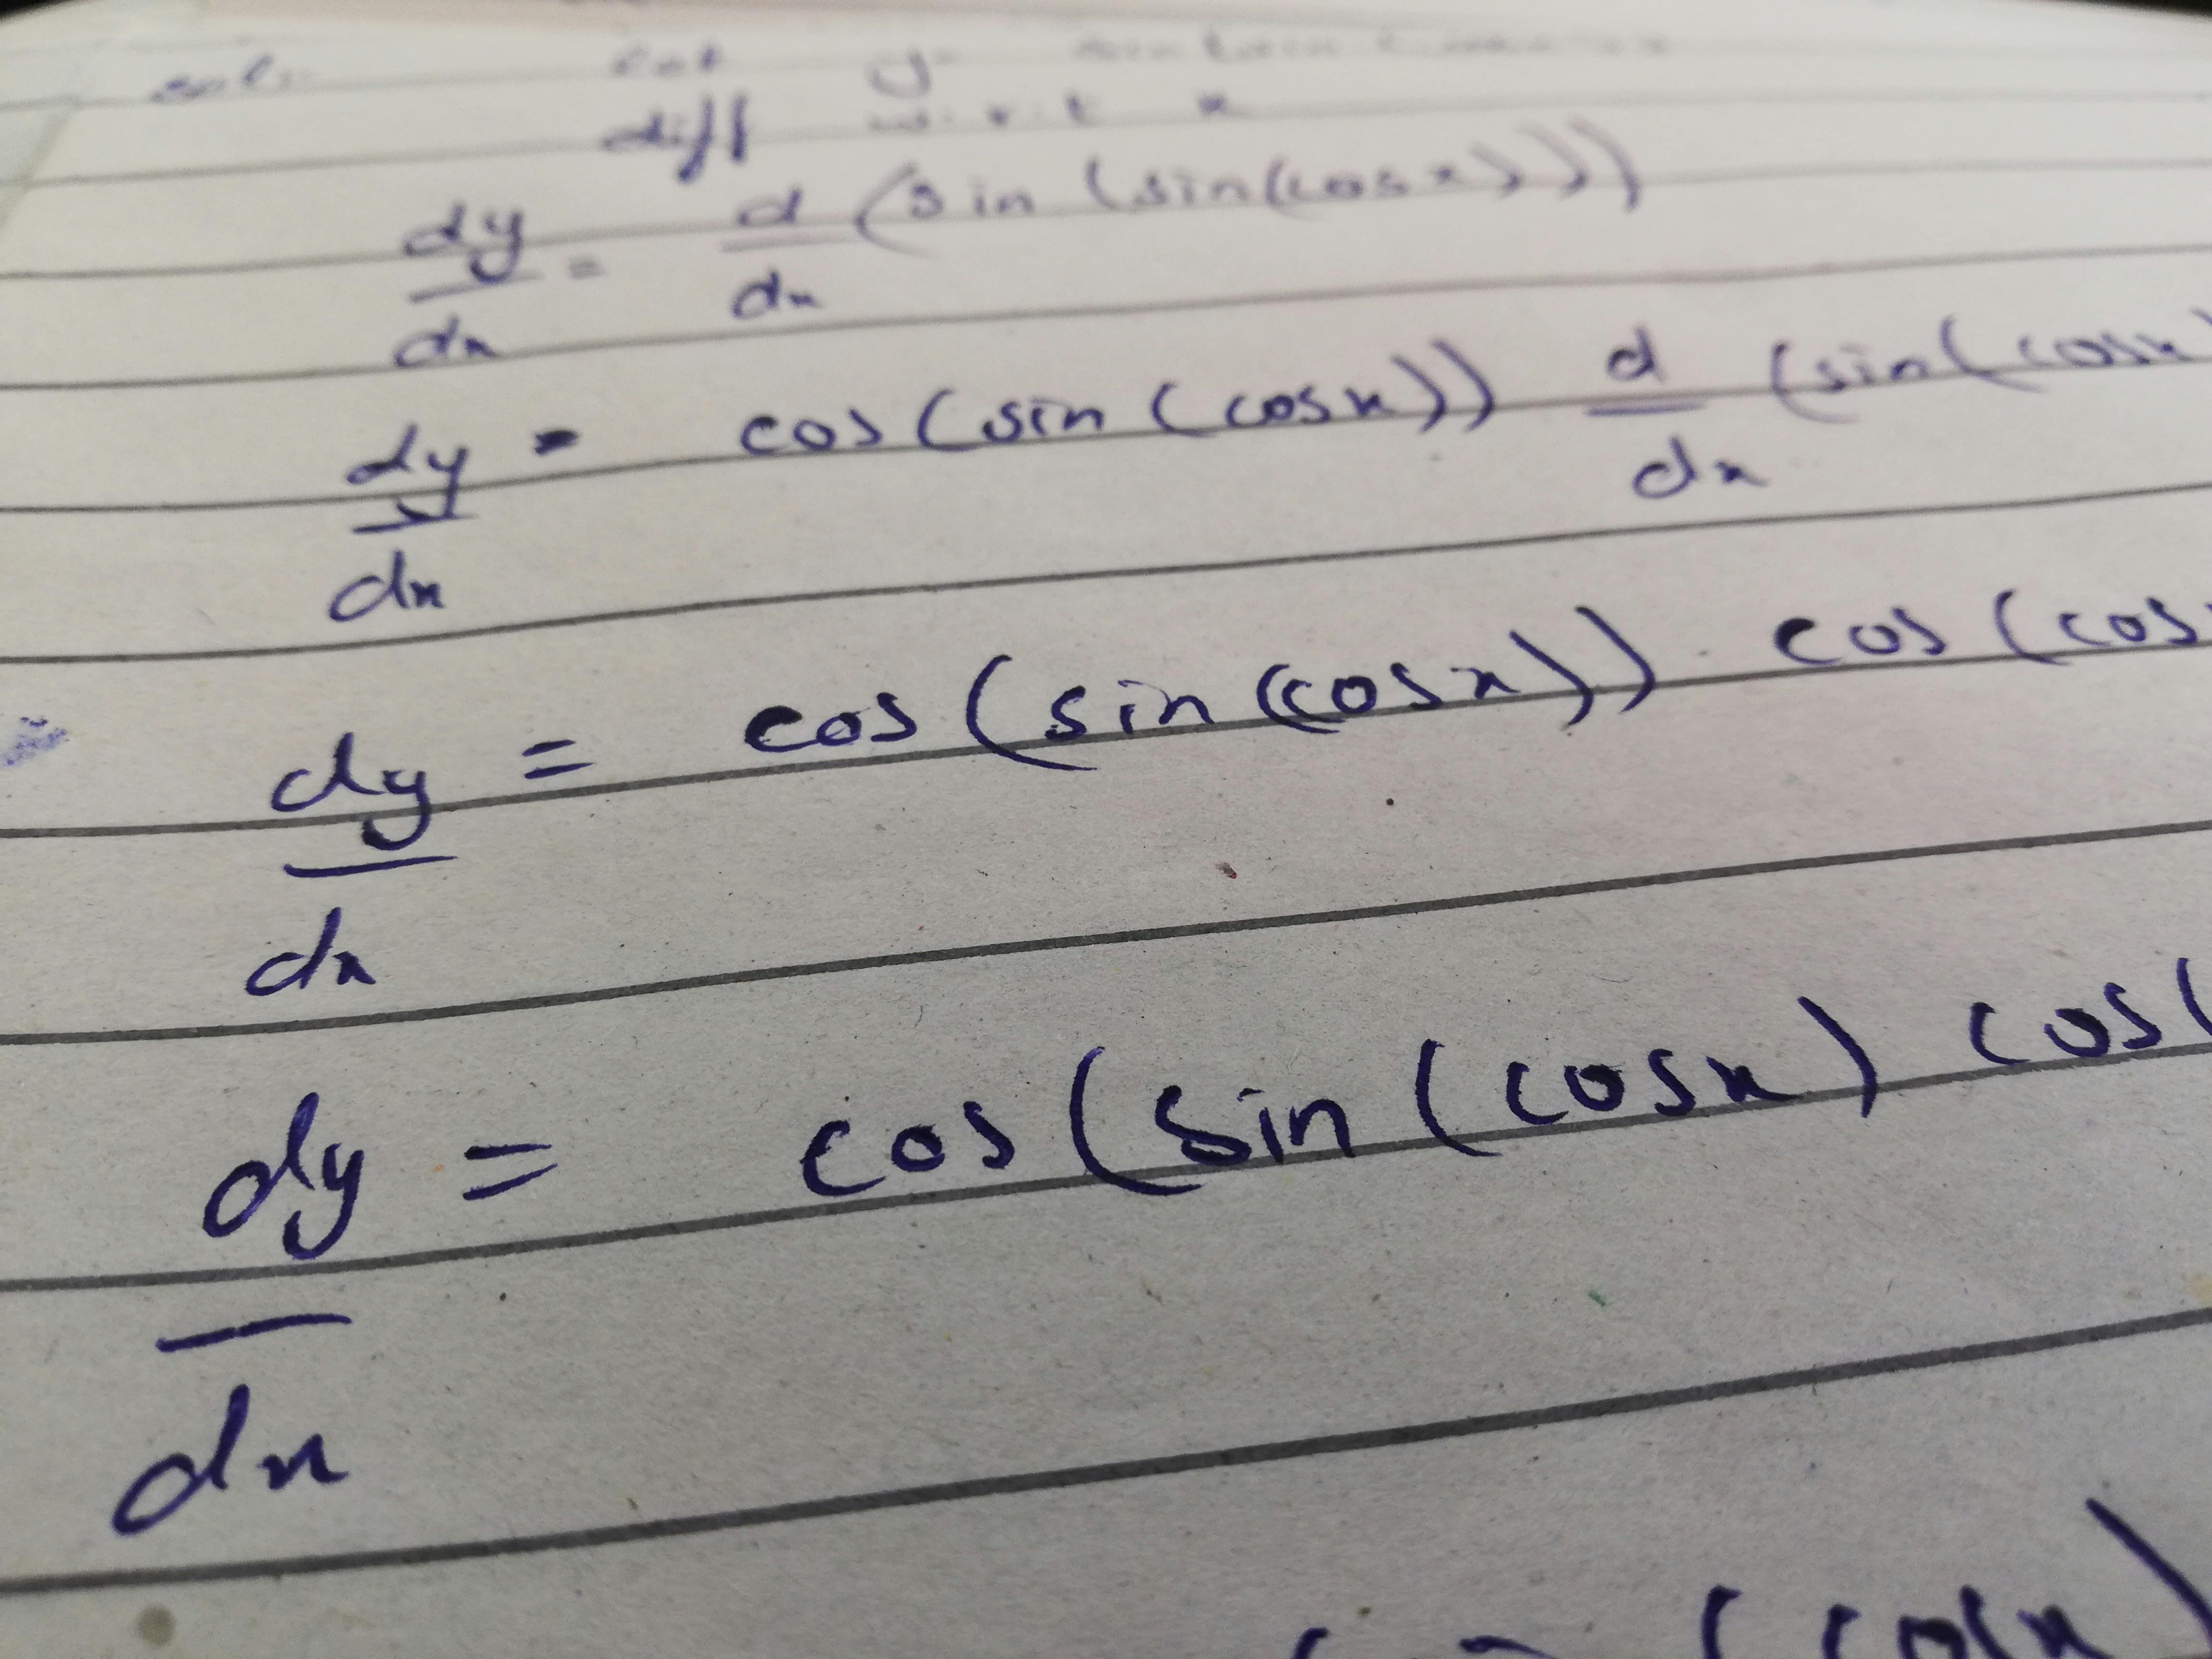 sol.
let y
diff w.r.t x
dy/dx = d/dx (sin (sin(cosx)))
dy/dx = cos(sin(cosx)) d/dx (sin(cosx)
dy/dx = cos(sin(cosx)). cos(cos
dy/dx = cos(sin(cosx) cos(
(cosx)